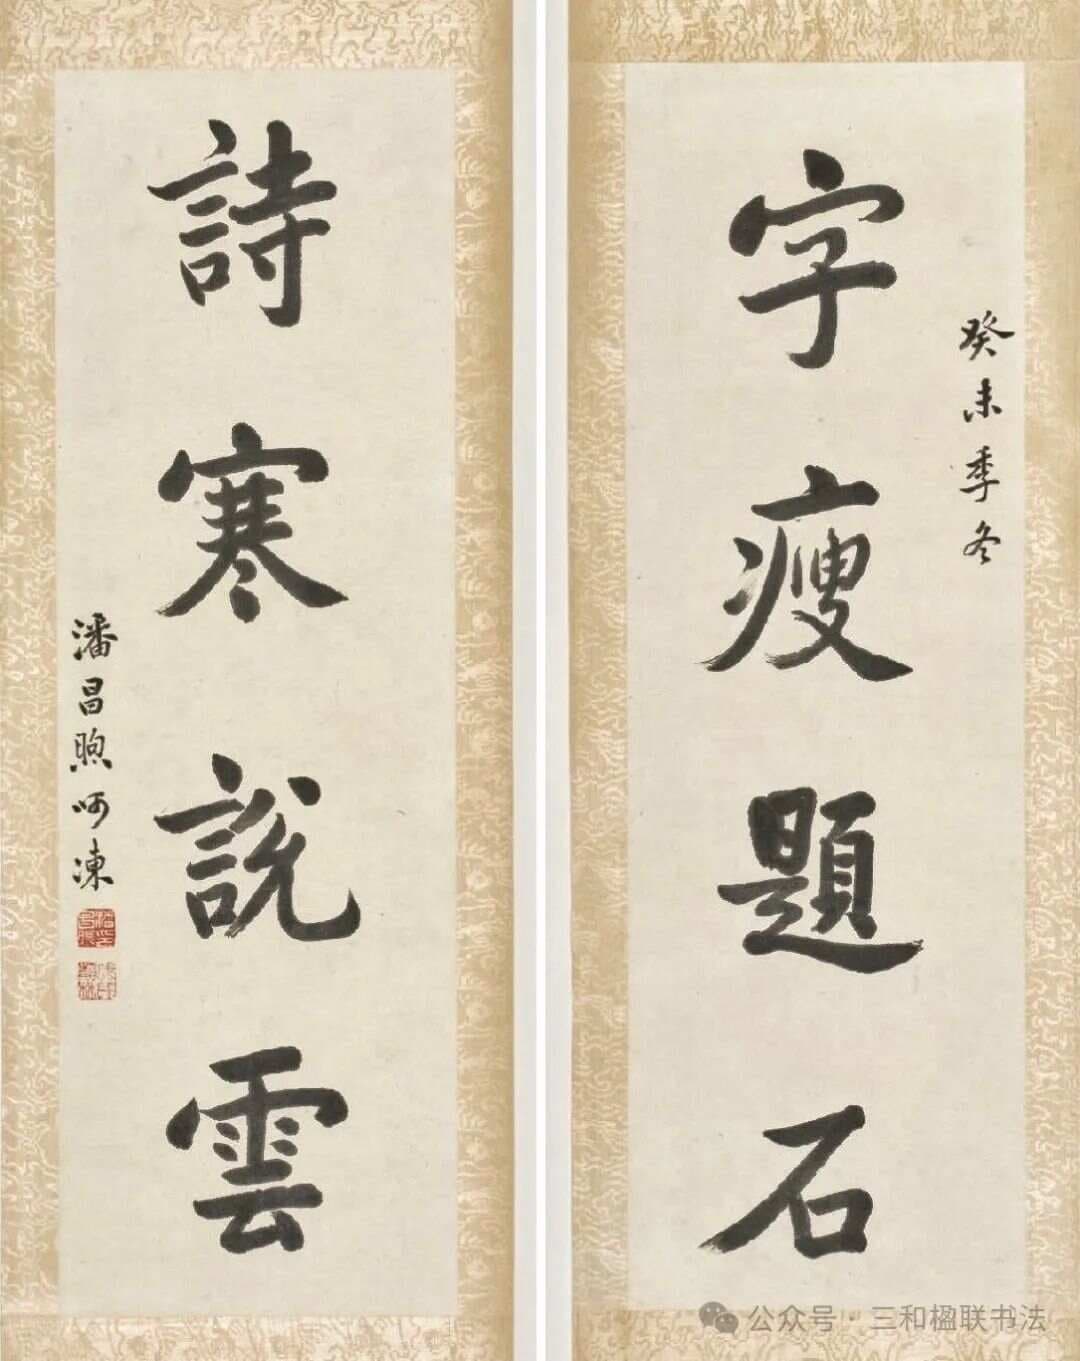 癸未季冬
字瘦題石
詩寒說雲
潘昌煦呵凍
公众号 · 三和楹联书法